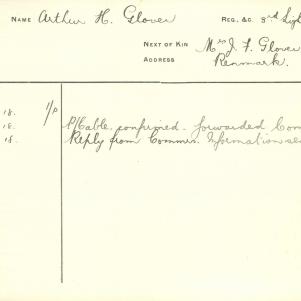 NAME Arthur H. Glover REG. &C. 3rd Light
NEXT OF KIN Mrs J. F. Glover
ADDRESS Renmark.
18. 1/P
18. P/Cable, confirmed. forwarded Com
18. Reply from Commrs. Information sen